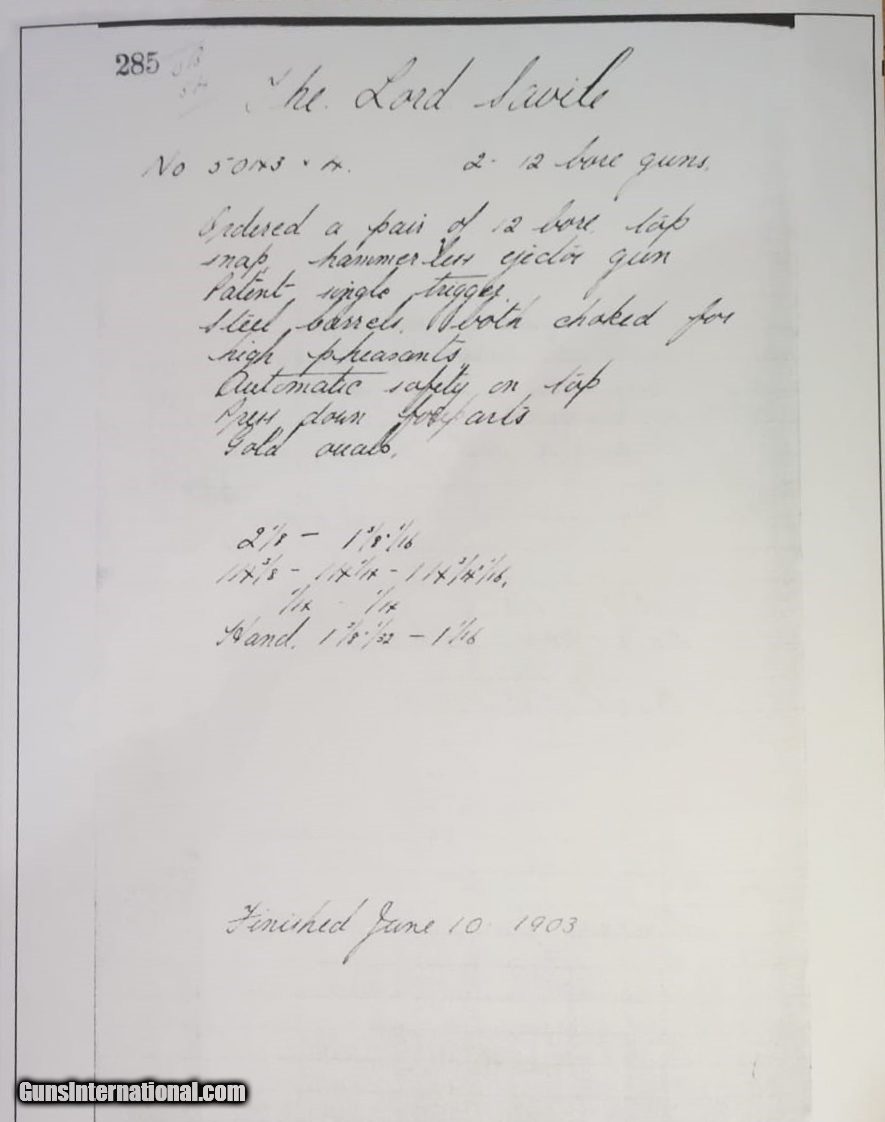 285
The Lord Savile
No 5043 & 4. 2- 12 bore guns.
Ordered a pair of 12 bore top
snap hammerless ejector gun
Patent single trigger
Steel barrels, both choked for
high pheasants
Automatic safety on top
Press down foreparts
Gold ovals.
2 1/8 - 1 3/8 . 1/16
14 3/8 - 14 1/4 - 14 3/4 1/16,
1/4 - 1/4
Hand. 1 3/8 . 1/32 - 1 1/16
Finished June 10 1903
GunsInternational.com